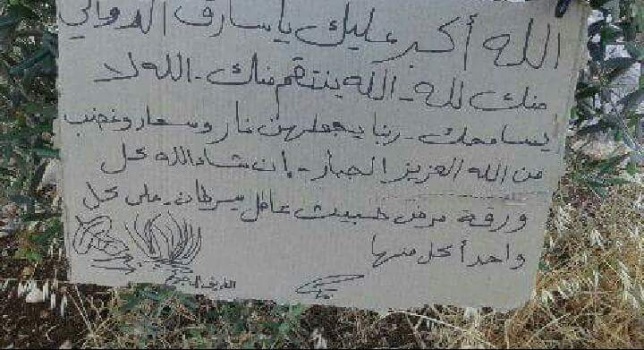 الله أكبر عليك يا سارق الدوالي
منك لله - الله ينتقم منك - الله لا
يسامحك - ربنا يجعلهن نار وسعار وغضب
من الله العزيز الجبار - إن شاء الله كل
ورقة مرض خبيث عامل سرطان - على كل
واحد أكل منها